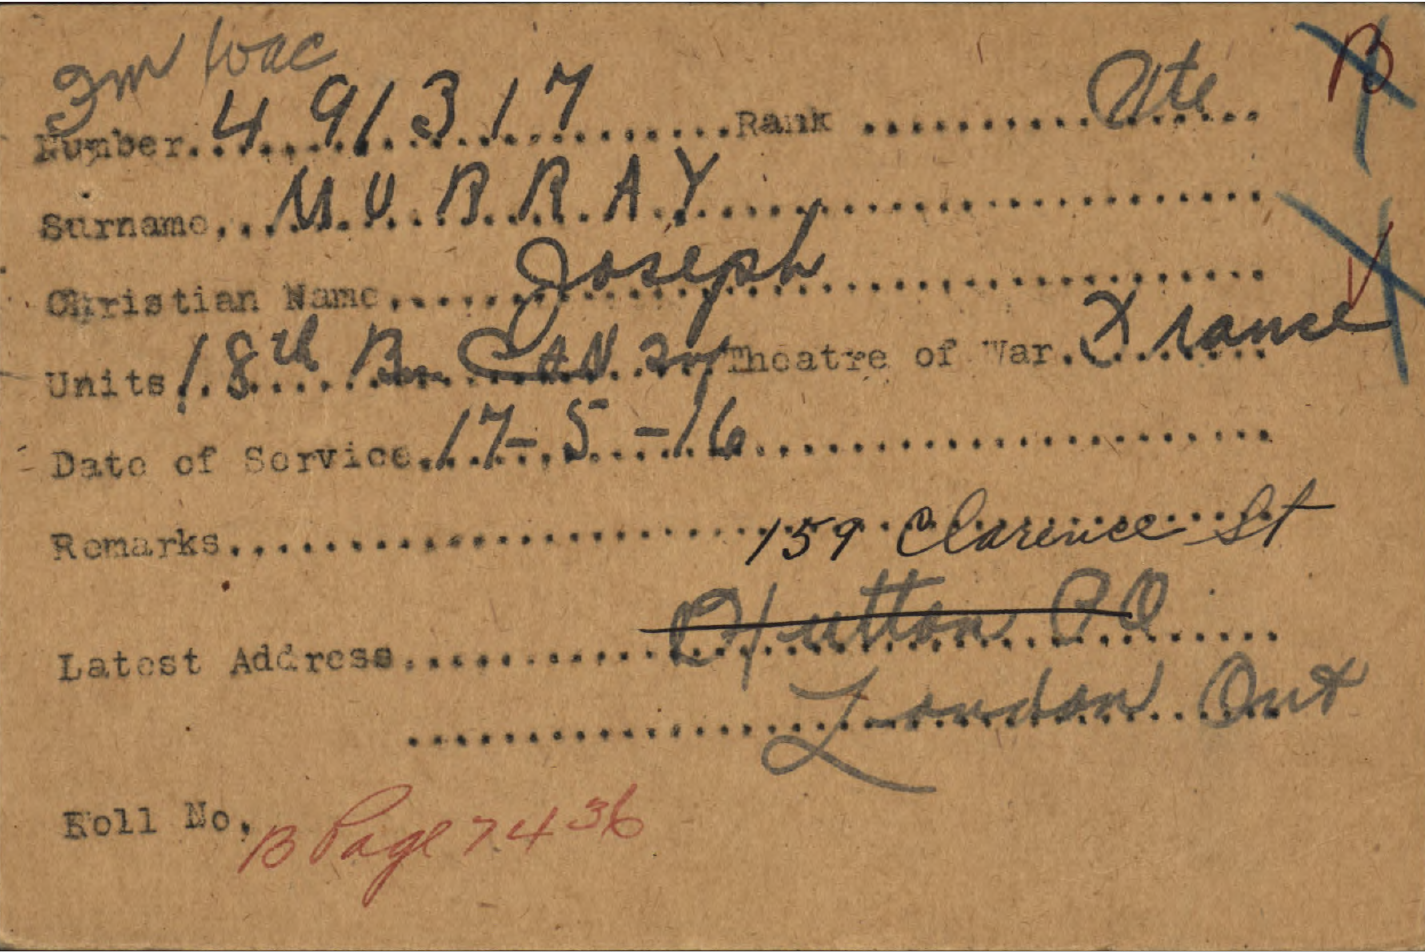 Number 491317 Rank Pte B
Surname MURRAY
Christian Name Joseph
Units 18th Bn CAN Inf Theatre of War France
Date of Service 17-5-16
Remarks 159 Clarence St
Latest Address Hutton PO
London Ont
Roll No. B Page 7436